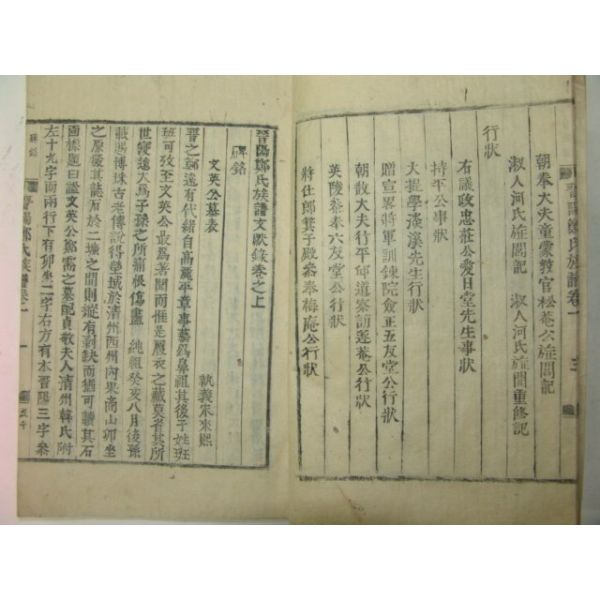 朝奉大夫童蒙教官松菴公旌閭記
淑人河氏旌閭記 淑人河氏旌閭重修記
行狀
右議政忠莊公愛日堂先生事狀
持平公事狀
大提學淡溪先生行狀
贈宣畧將軍訓鍊院僉正五友堂公行狀
朝散大夫行平邱道察訪遯菴公行狀
英陵參奉六友堂公行狀
將仕郎箕子殿參奉梅庵公行狀
晉陽鄭氏族譜卷一
三
晉陽鄭氏族譜文獻錄卷之上
碑銘
文英公墓表
執義宋來熙
晉之鄭遠有代緖自高麗平章事藝爲鼻祖其後子姓班
班可攷至文英公最爲著而惟是履衣之藏莫省其所
世寖遠大爲子孫之所痛恨傷盡 純祖癸亥八月後孫
之原後其誌石於二壙之間則縱有剝缺而猶可讀其石
面標題曰訟文英公鄭需之墓配貞敬夫人淸州韓氏附
左十九字而兩行下有卯坐二字右方有本晉陽三字叅
晉陽鄭氏族譜卷一